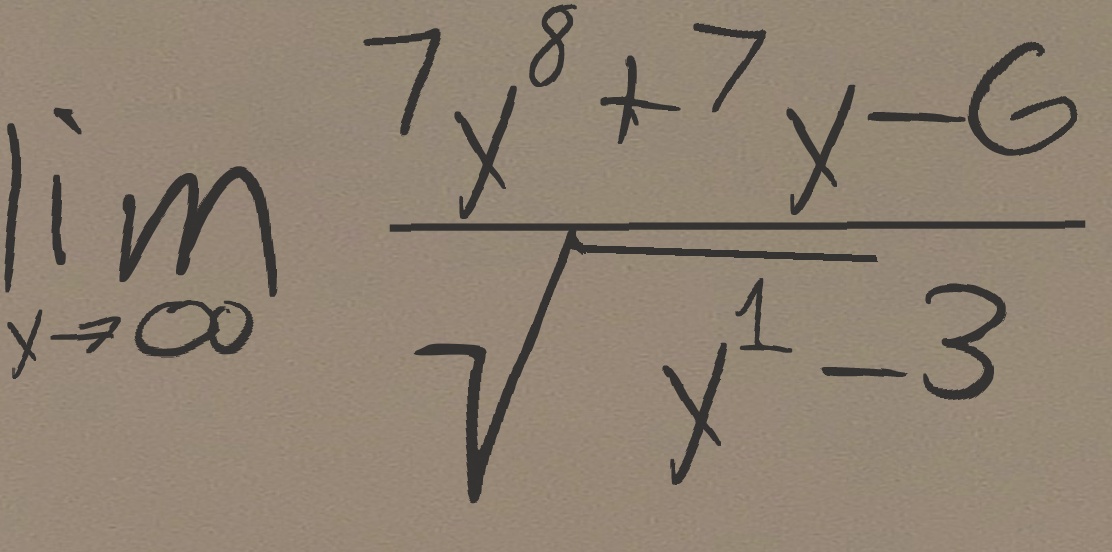 \lim_{y \to \infty} \frac{7y^8 + 7y - 6}{\sqrt{y^1 - 3}}